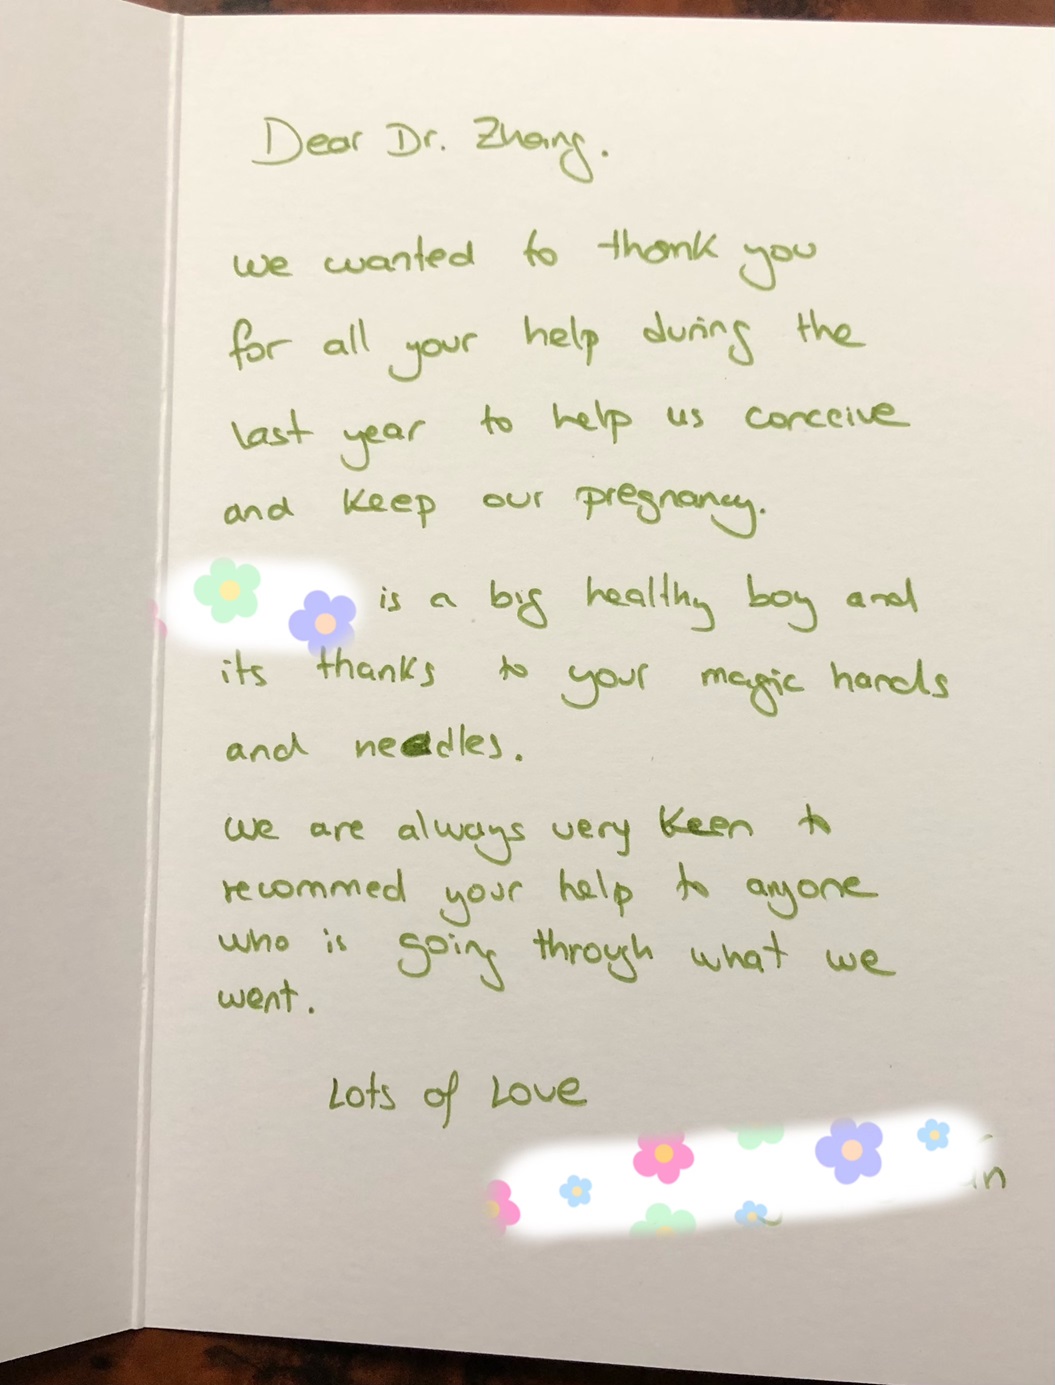 Dear Dr. Zhang.
we wanted to thank you
for all your help during the
last year to help us conceive
and keep our pregnancy.
is a big healthy boy and
its thanks to your magic hands
and needles.
we are always very keen to
recommed your help to anyone
who is going through what we
went.
Lots of Love